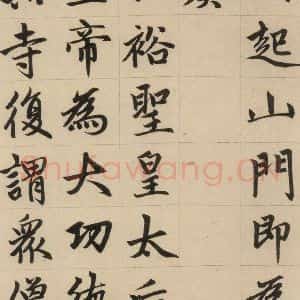 起山門即為
裕聖皇太后
帝為大功德
寺復謂衆僧
Shufawang.CN